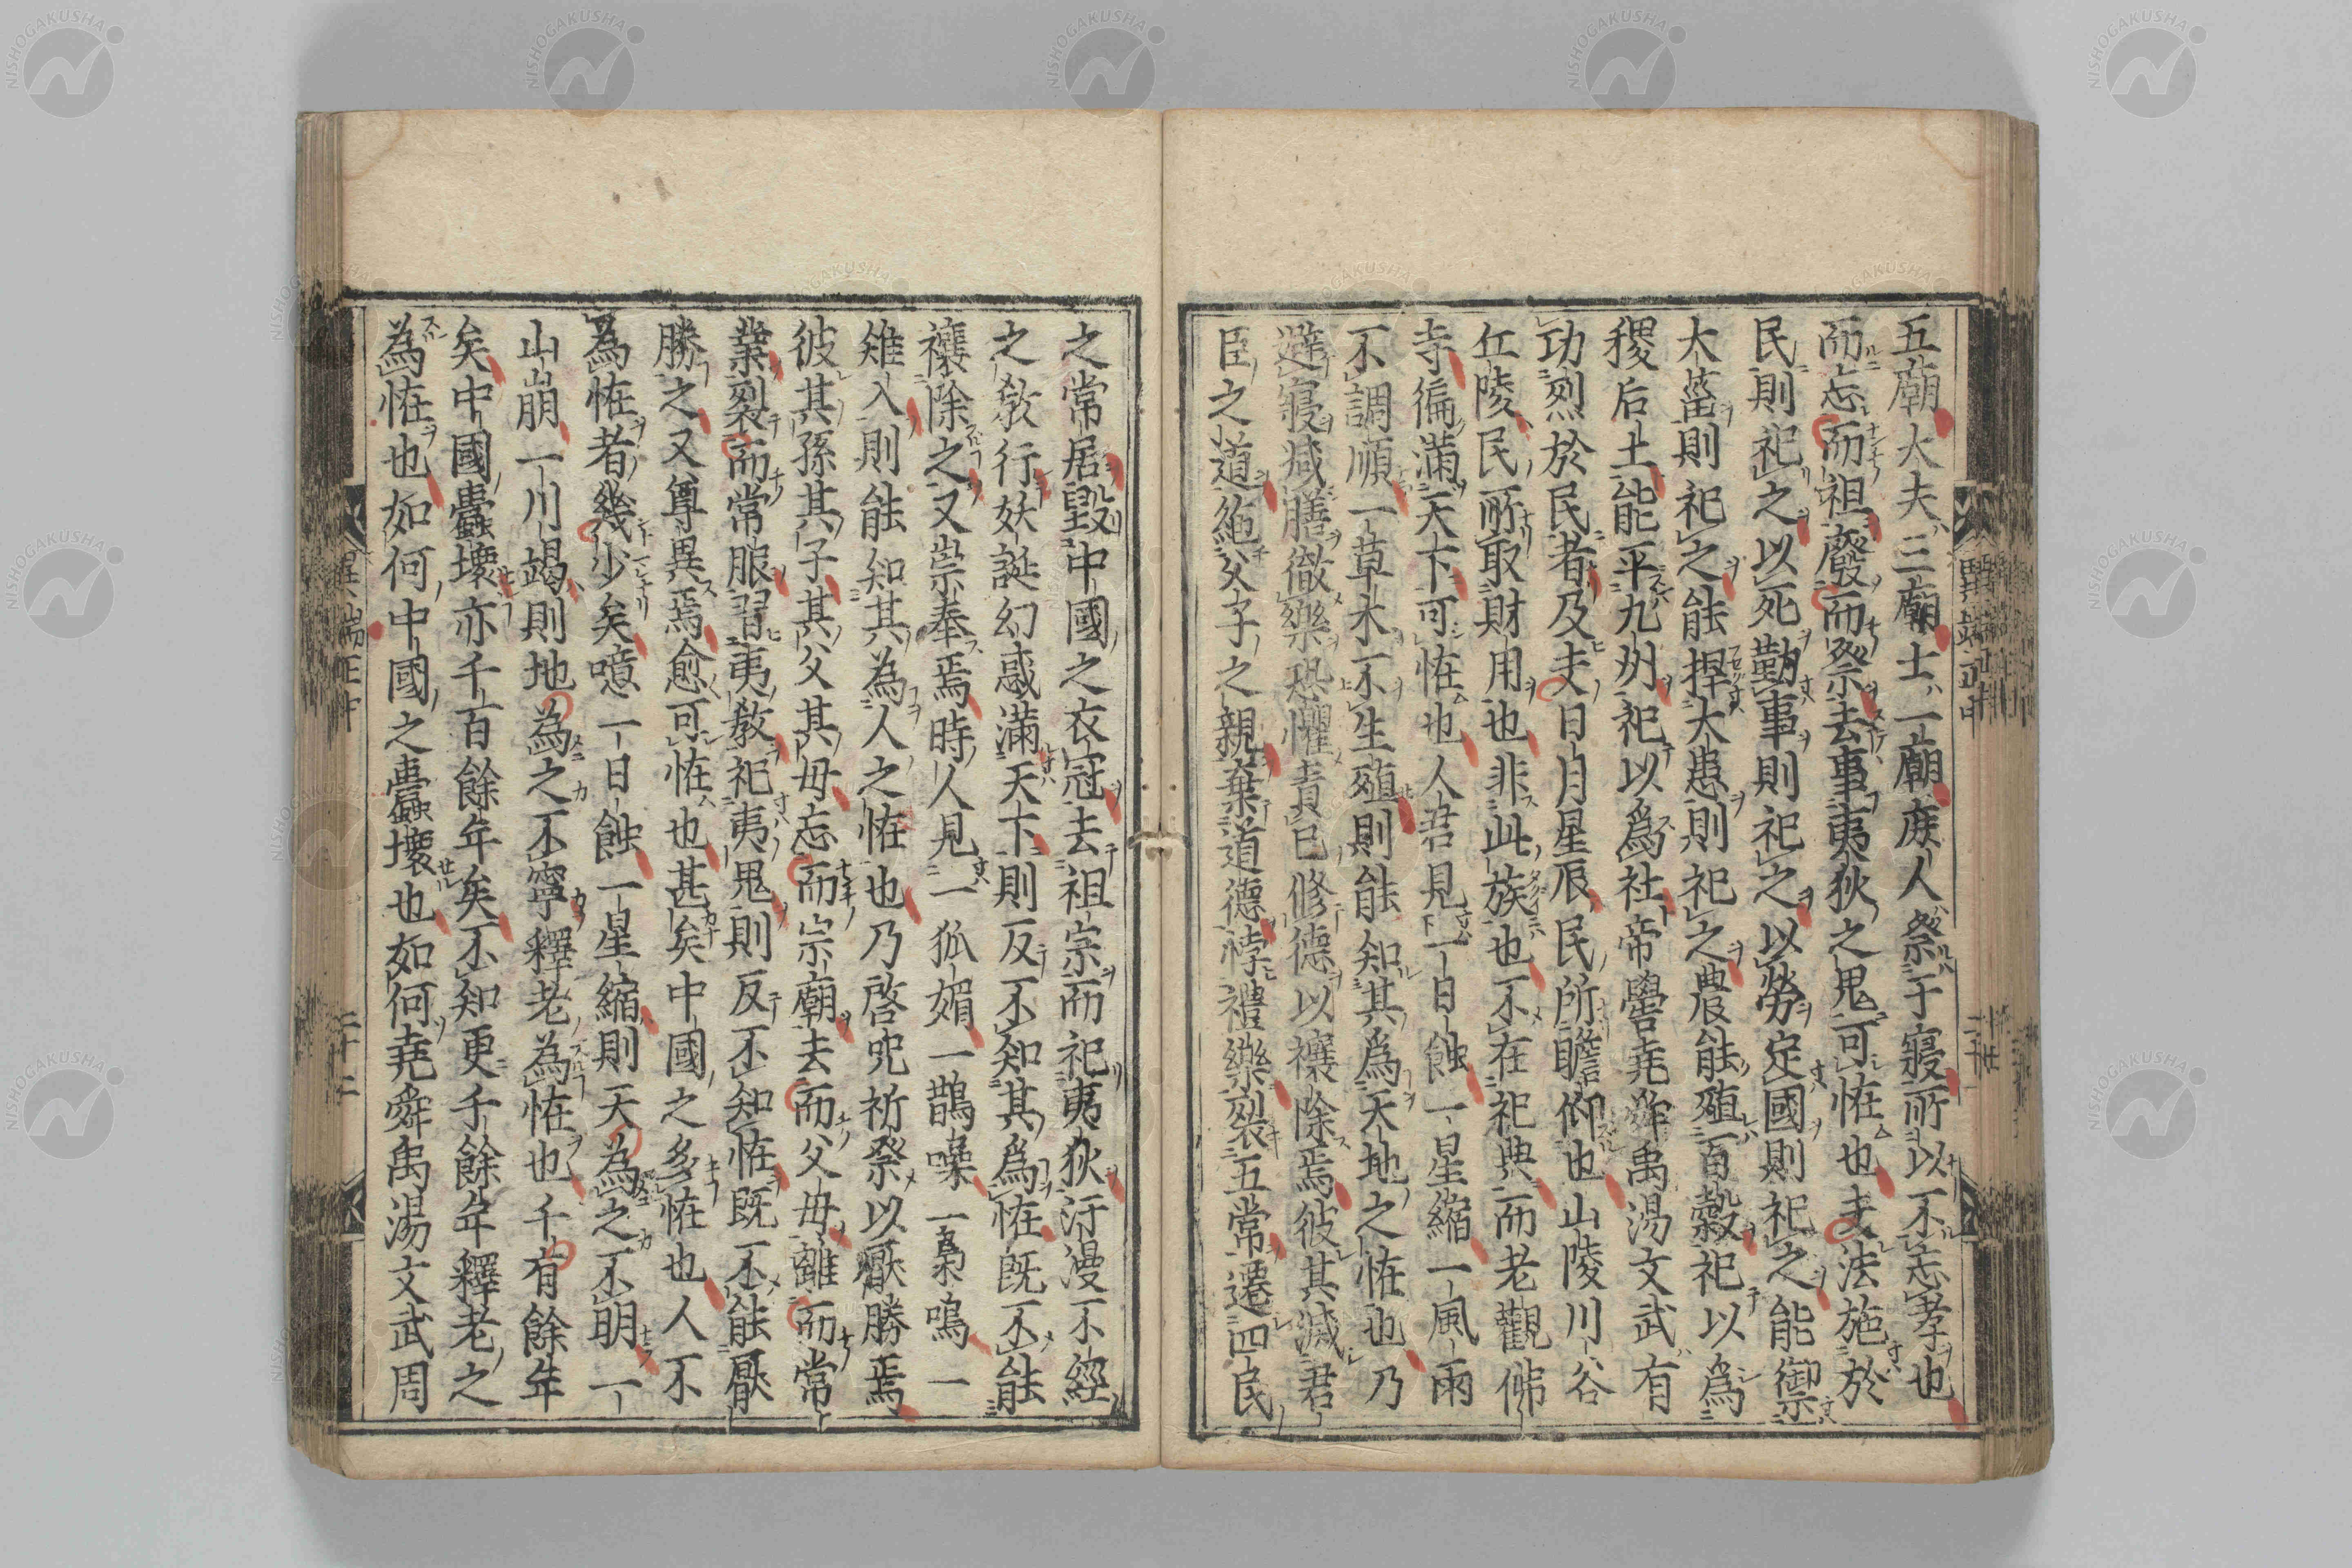 五廟大夫三廟士一廟庶人祭于寢所以不忘孝也
而忘而祖廢而祭去事夷狄之鬼可恠也夫法施於
民則祀之以死勤事則祀之以勞定國則祀之能禦
大菑則祀之能捍大患則祀之農能殖百穀祀以爲
稷后土能平九州祀以爲社帝嚳堯舜禹湯文武有
功烈於民者及夫日月星辰民所瞻仰也山陵川谷
丘陵民所取財用也非此族也不在祀典而老觀佛
寺徧滿天下可恠也人君見一日蝕一星縮一風雨
不調順一草木不生殖則能知其爲天地之恠也乃
避寢减膳徹樂恐懼責已修德以禳除焉彼其滅君
臣之道絶父子之親棄道德悖禮樂裂五常遷四民
之常居毀中國之衣冠去祖宗而祀夷狄汙漫不經
之敎行妖誕幻惑滿天下則反不知其爲恠既不能
禳除之又崇奉焉時人見一狐媚一鵲噪一梟鳴一
雉入則能知其為人之恠也乃啓咒祈祭以厭勝焉
彼其孫其子其父其母忘而宗廟去而父母離而常
業裂而常服習夷敎祀夷鬼則反不知恠既不能厭
勝之又尊異焉愈可恠也甚矣中國之多恠也人不
為恠者幾少矣噫一日蝕一星縮則天為之不明一
山崩一川竭則地為之不寧釋老為恠也千有餘年
矣中國蠹壞亦千百餘年矣不知更千餘年釋老之
為恠也如何中國之蠹壞也如何堯舜禹湯文武周
異端正中
二十二